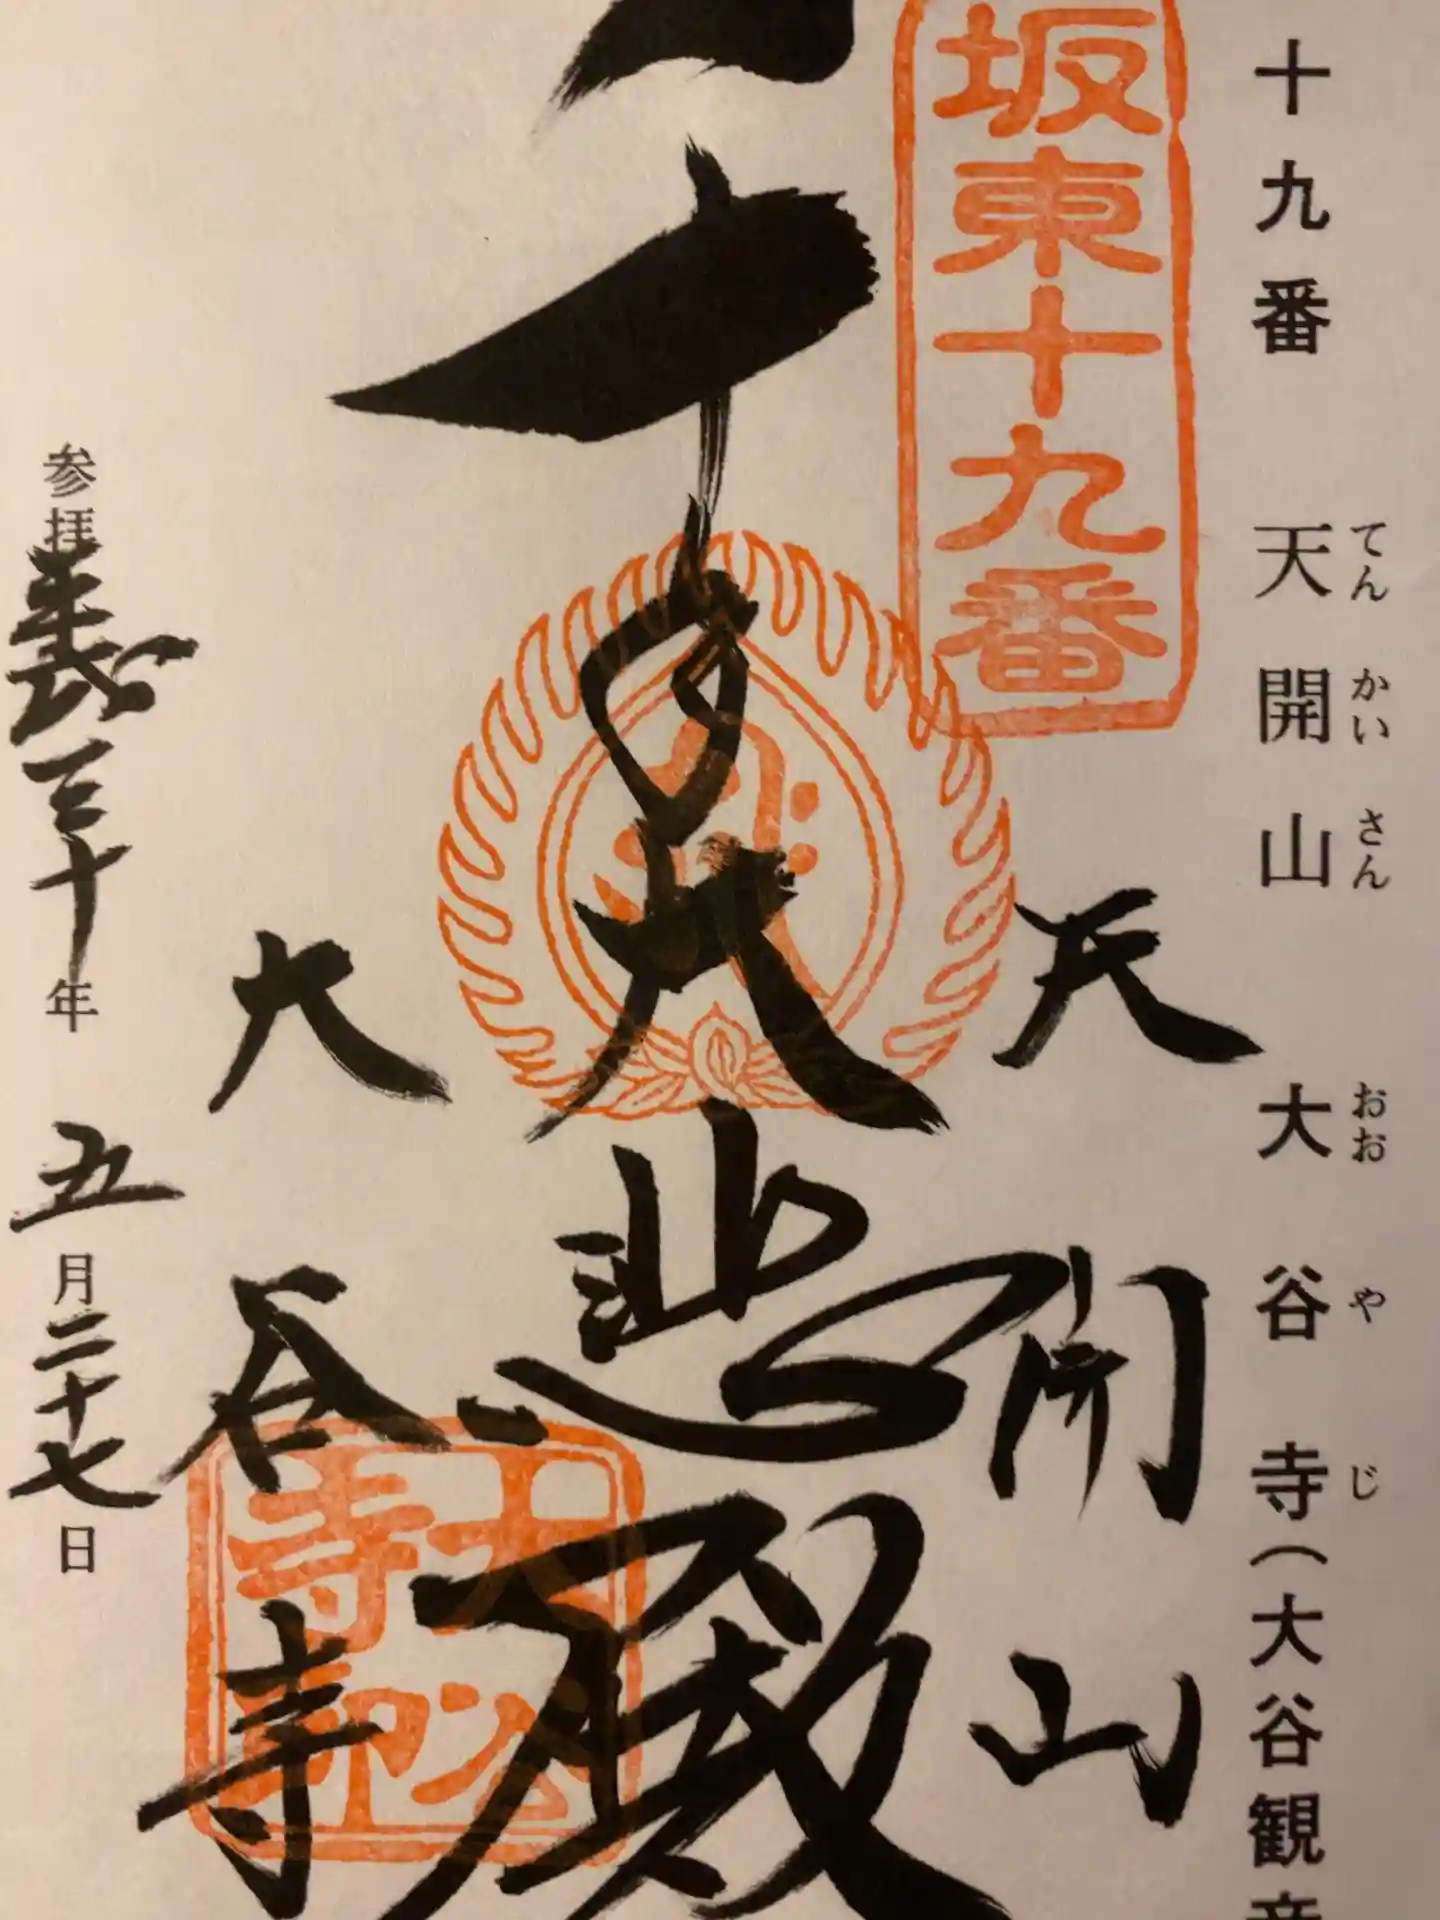 十九番 天開山 大谷寺（大谷観音
てんかいさん おおやじ
坂東十九番
天開山
千手大悲殿
大谷寺
大谷寺印
参拝 平成三十年 五月二十七日